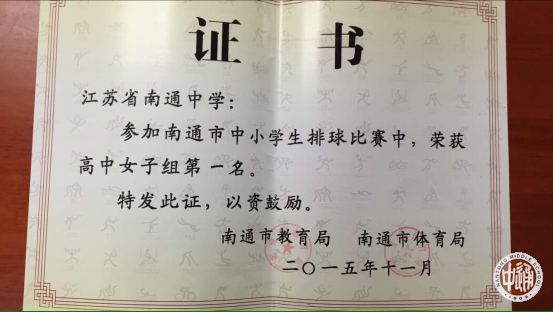 证 书
江苏省南通中学：
参加南通市中小学生排球比赛中，荣获
高中女子组第一名。
特发此证，以资鼓励。
南通市教育局 南通市体育局
二〇一五年十一月